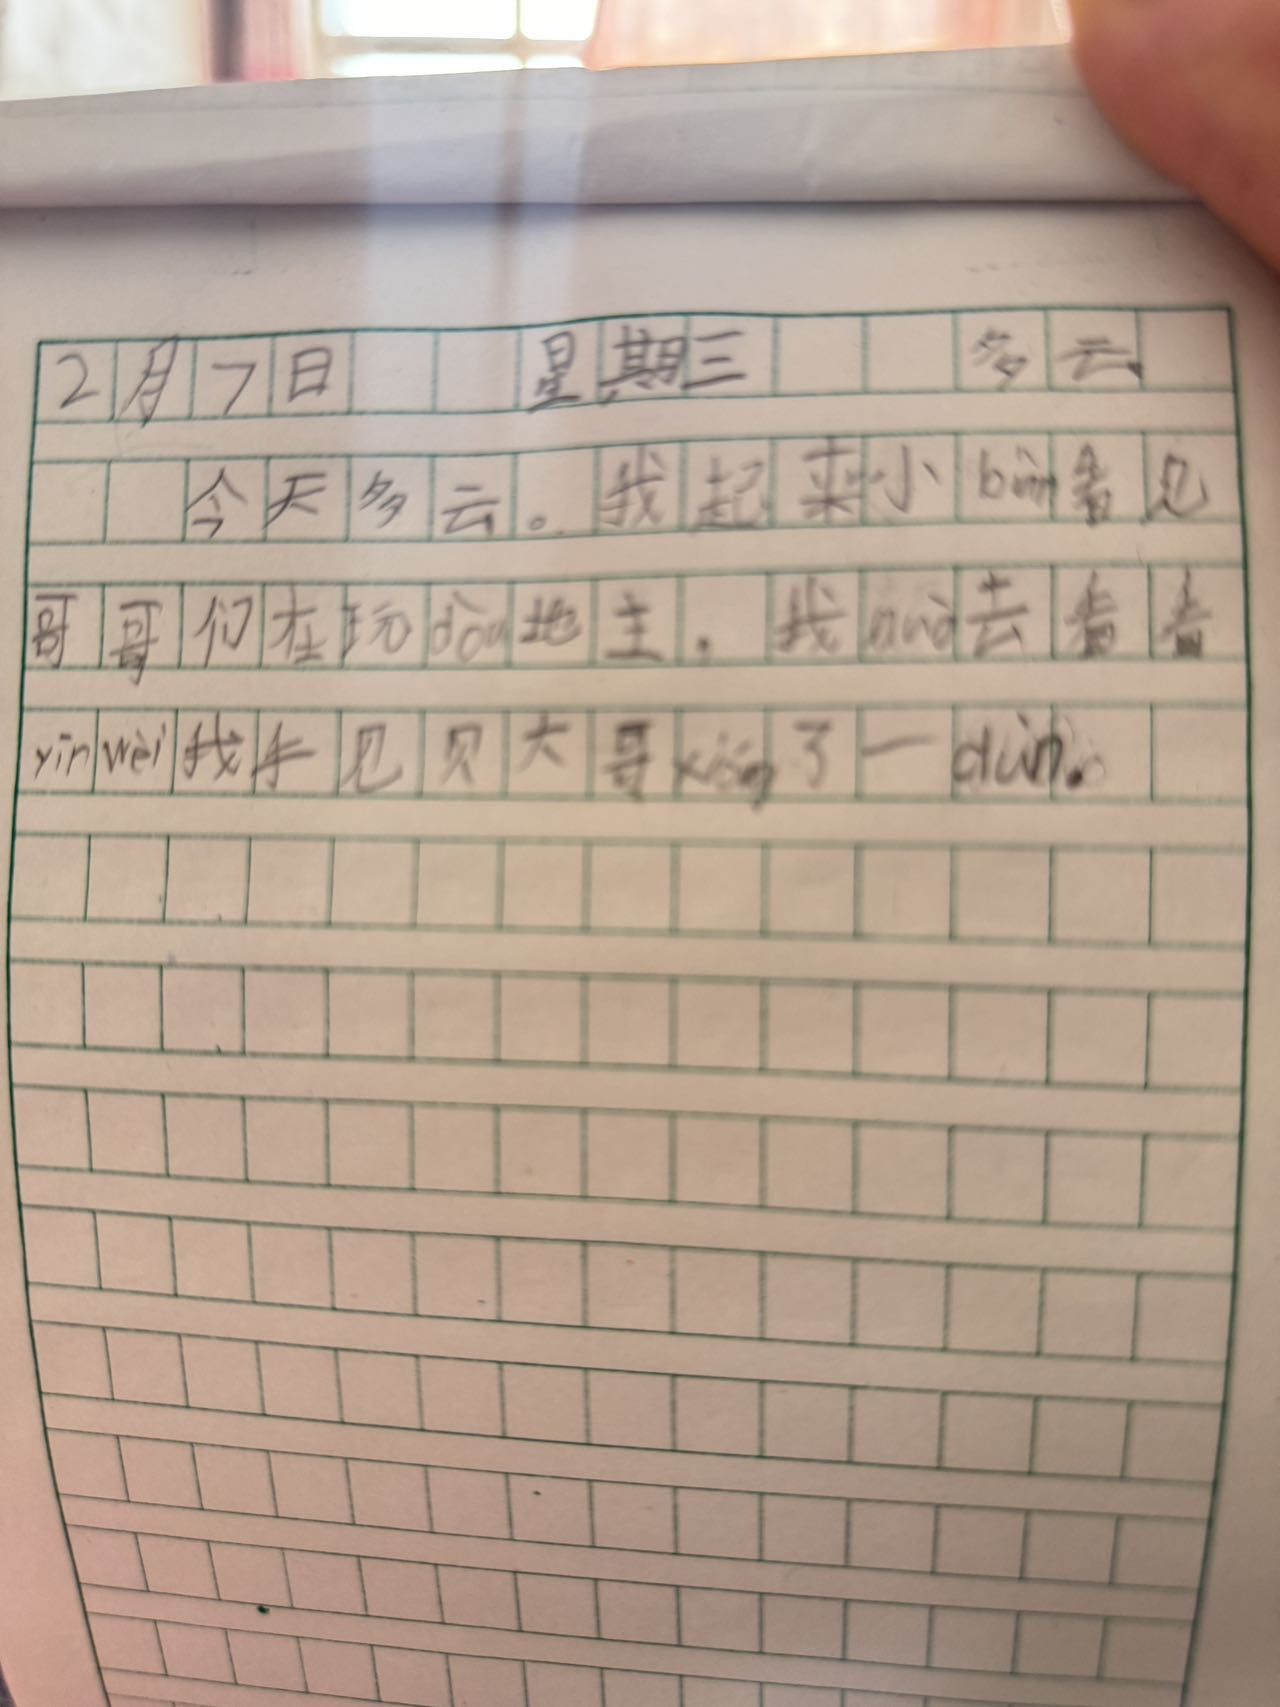 2月7日 星期三 多云
今天多云。我起来小biàn看见
哥哥们在玩dòu地主。我guò去看看
yīn wèi我手贝大哥xiōng了一dùn。